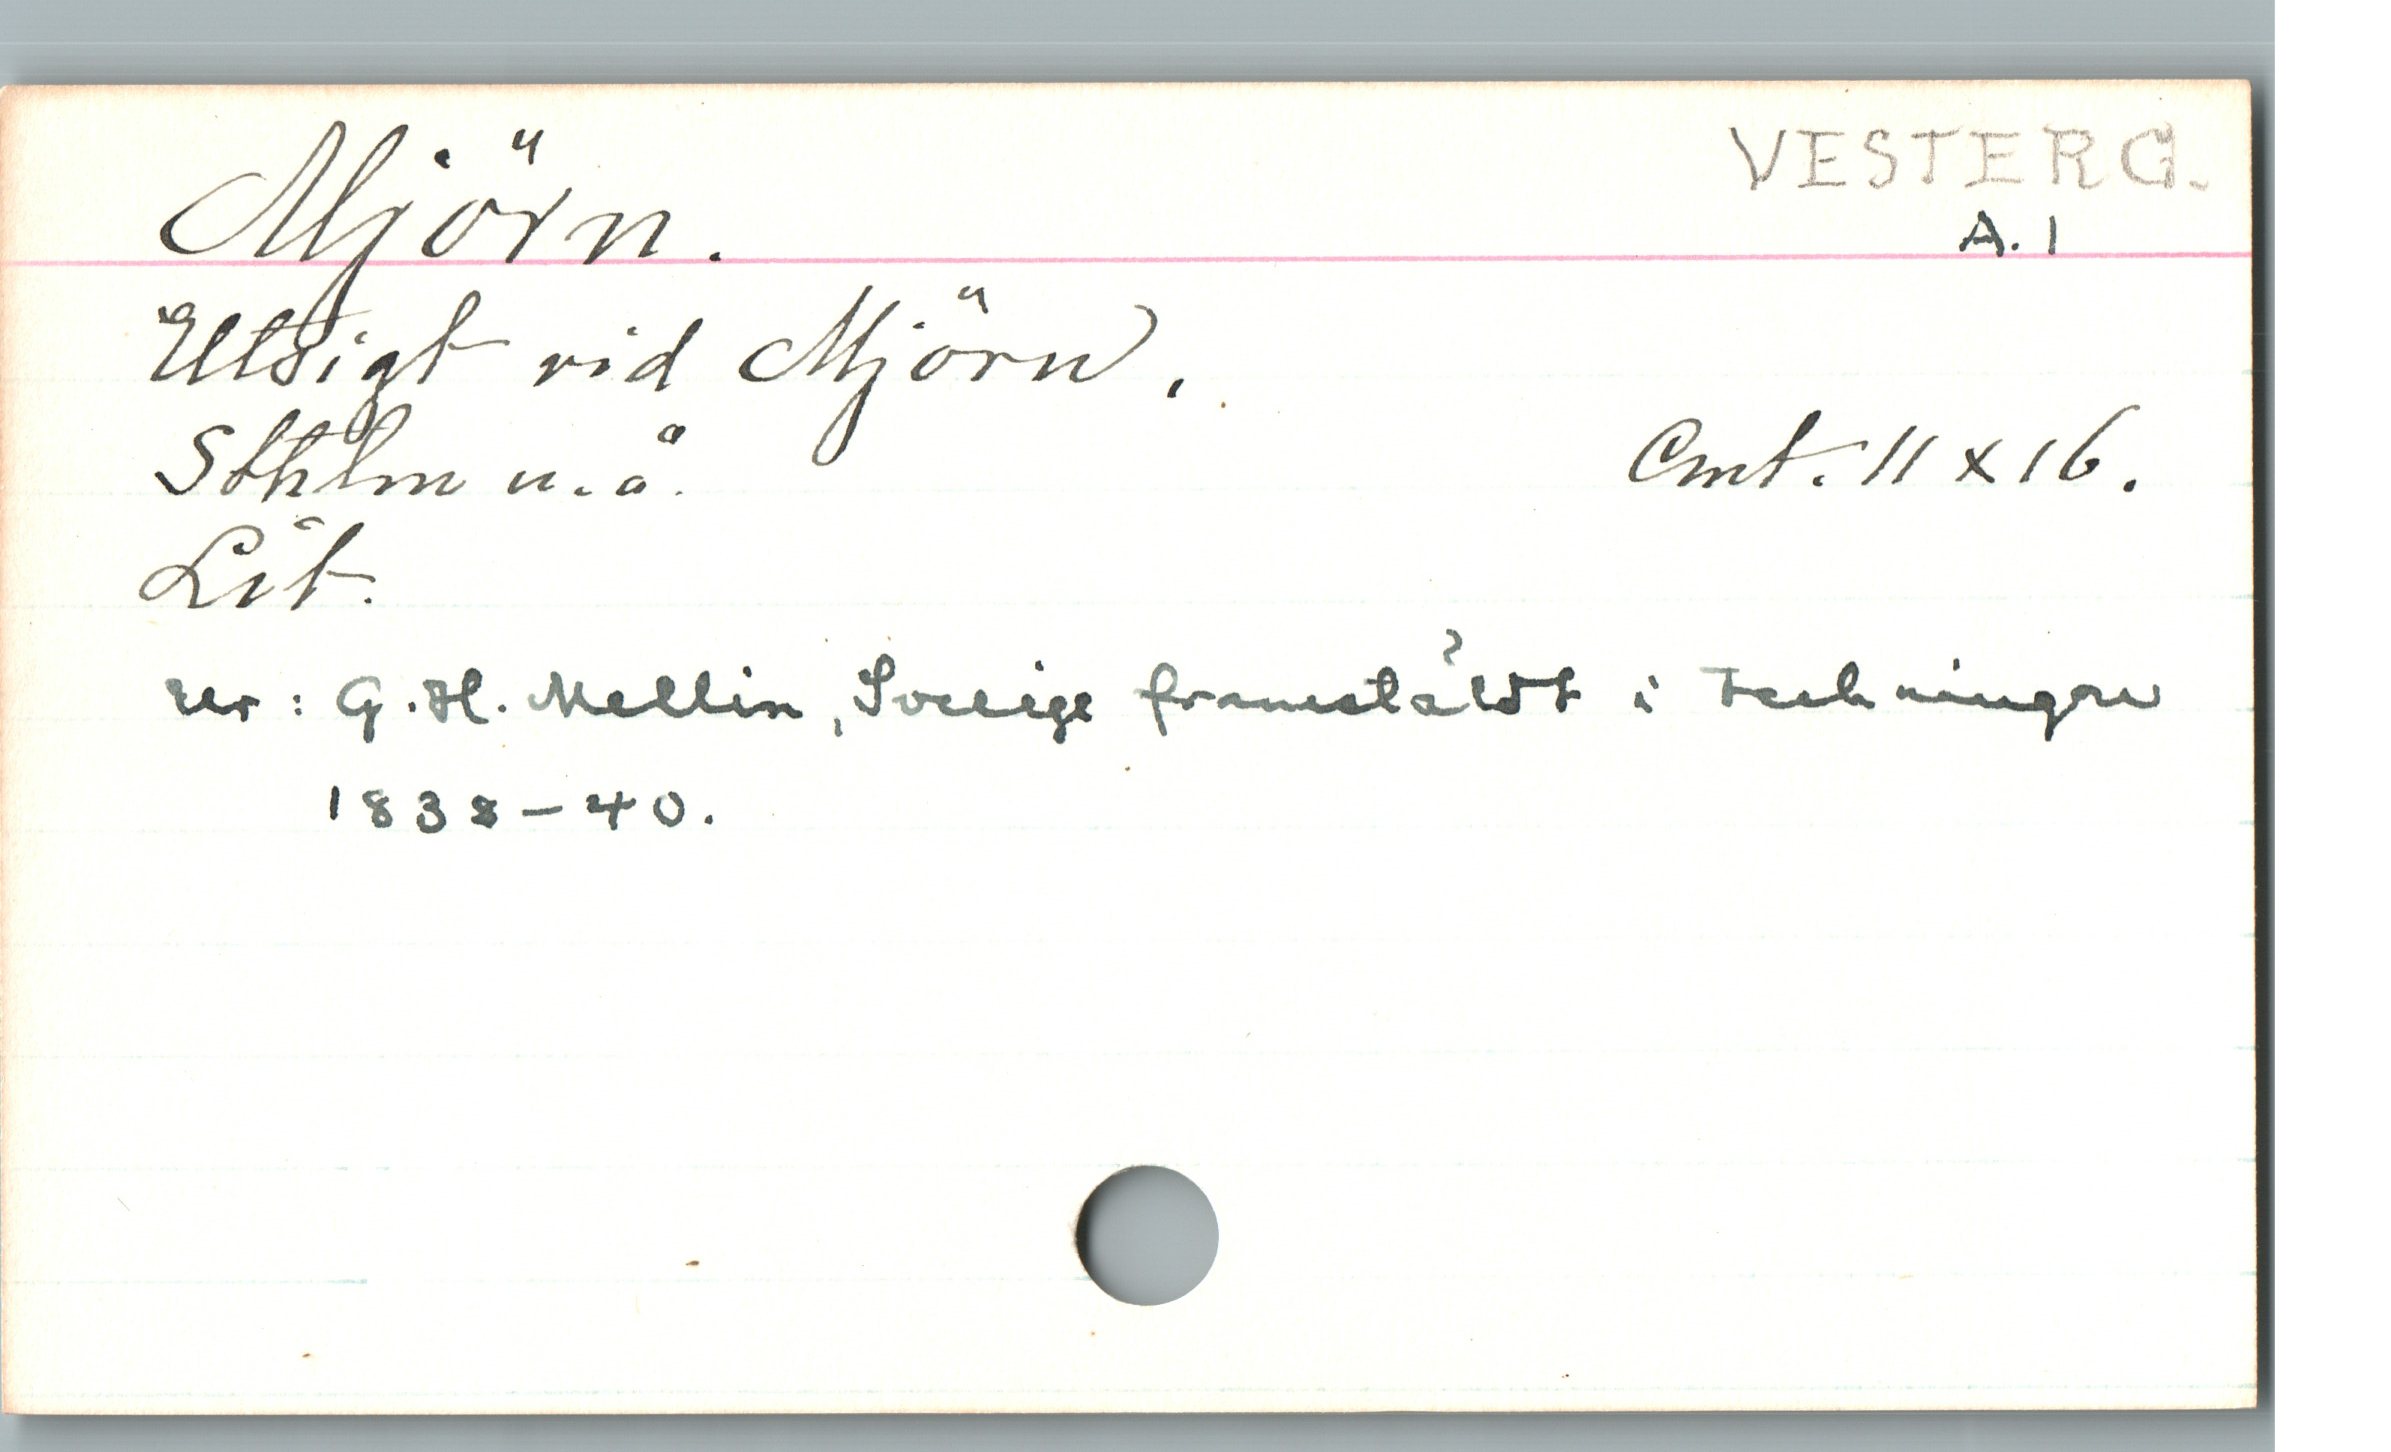 Mjörn.
VESTERG.
A. 1
Utsigt vid Mjörn.
Sthlm u. å.
Cmt. 11 x 16.
Lit.
Ur: G. H. Mellin, Sverige framstäldt i teckningar
1838-40.